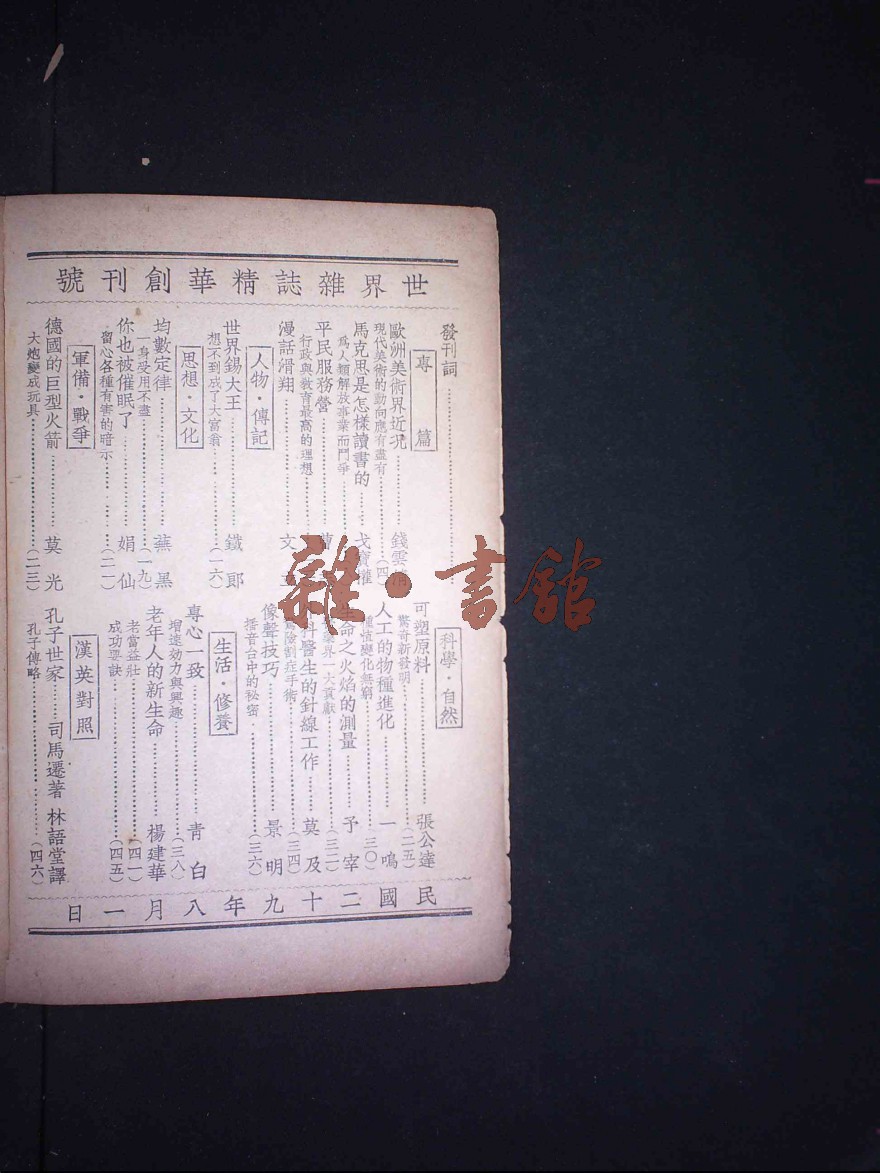 世界雜誌精華創刊號
發刊詞
專篇
歐洲美術界近況 錢雲
現代美術的動向應有盡有 (四)
馬克思是怎樣讀書的 戈寶權
為人類解放事業而鬥爭
平民服務營
行政與教育最高的理想
漫話滑翔 文
人物·傳記
世界錫大王 鐵郎
想不到成了大富翁 (一六)
思想·文化
均數定律 蕪黑
一身受用不盡 (一九)
你也被催眠了 娟仙
留心各種有害的暗示 (二一)
軍備·戰爭
德國的巨型火箭 莫光
大炮變成玩具 (二三)
科學·自然
可塑原料 張公達
驚奇新發明 (二五)
人工的物種進化 一鳴
種植變化無窮 (三〇)
生命之火焰的測量 予宰
業界一大貢獻 (三二)
科醫生的針線工作 莫及
險割症手術 (三四)
像聲技巧 景明
播音台中的秘密 (三六)
生活·修養
專心一致 青白
增速效力與興趣 (三八)
老年人的新生命 楊建華
老當益壯 (四一)
成功要訣 (四五)
漢英對照
孔子世家 司馬遷著 林語堂譯
孔子傳略 (四六)
民國二十九年八月一日
雜·書館